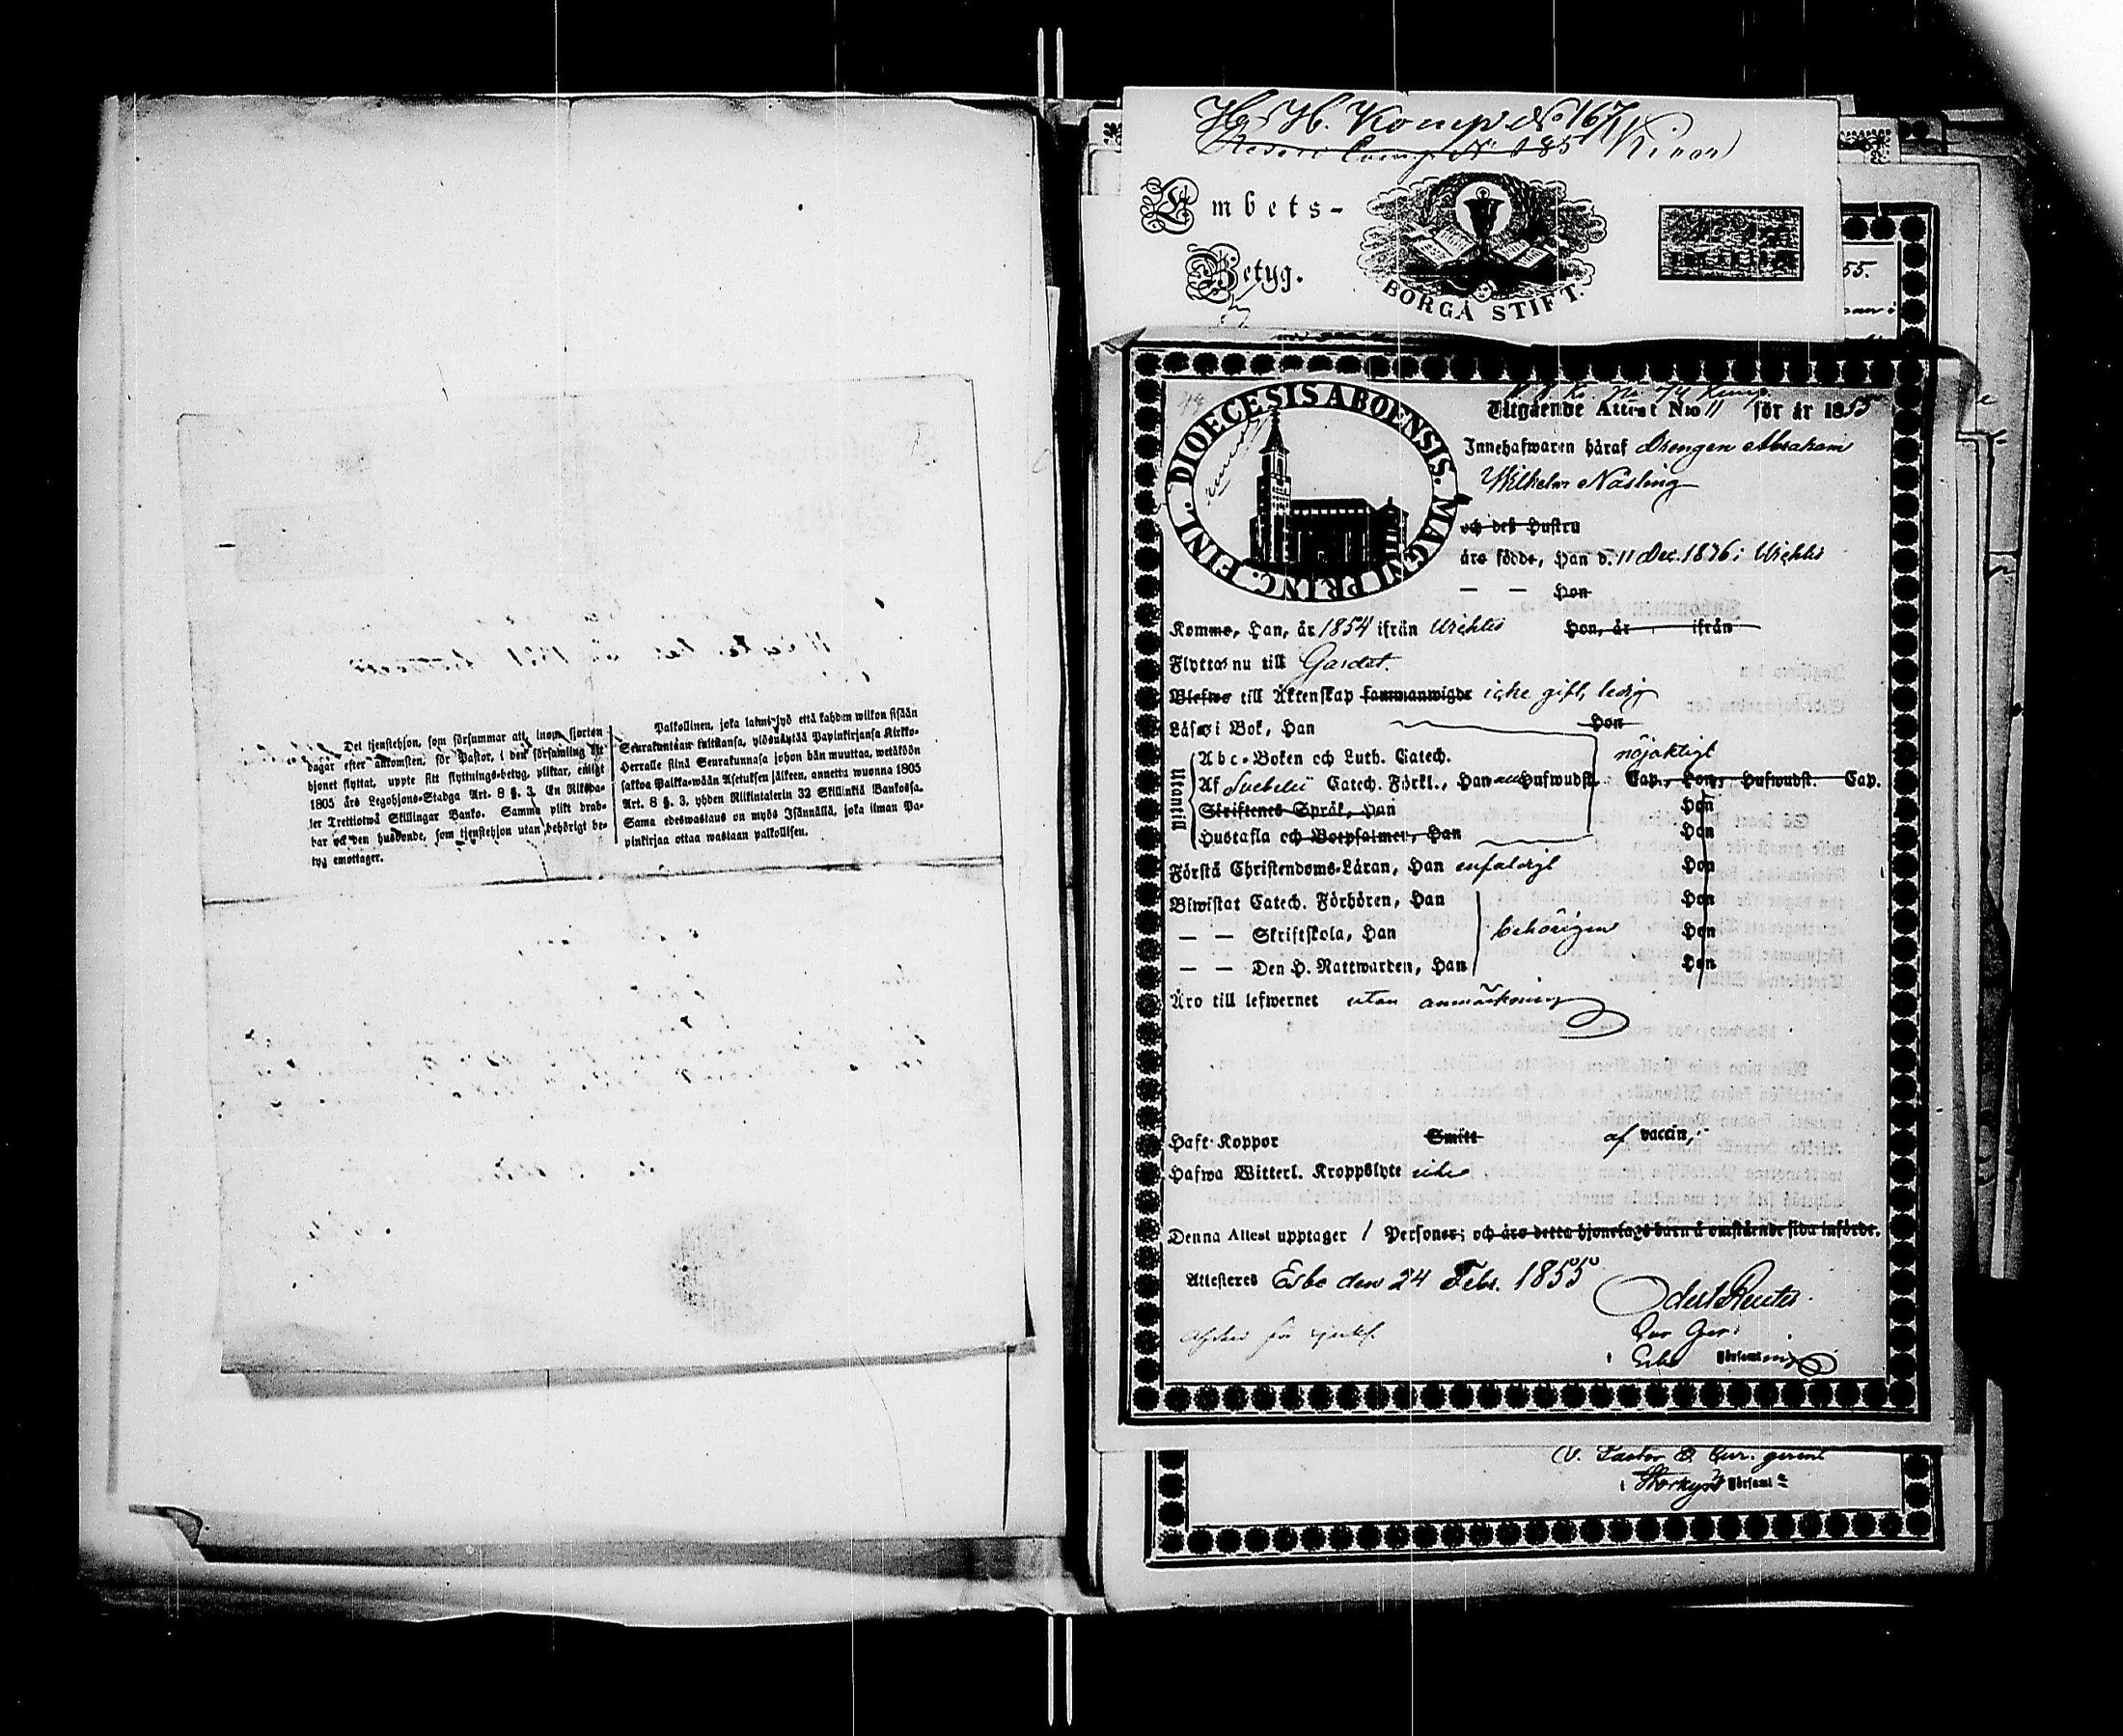 Det tjenstehjon, som försummar att, inom fjorton
dagar efter ankomsten, för Pastor, i den församling dit
hjonet flyttat, uppte sitt flyttnings-betyg, pliktar, enligt
1805 års Legohjons-Stadga Art. 8 §. 3. En Riksda-
ler Trettiotwå Skillingar Banko. Samma plikt drab-
bar ock den husbonde, som tjenstehjon utan behörigt be-
tyg emottager.
Palkollinen, joka laimi-lyö että kahden wiikon sisään
Seurakuntaan tultuansa, ylösnäyttää Papinkirjansa Kirkko-
Herralle siinä Seurakunnasa johon hän muuttaa, wetäköön
sakkoa Palkka-wään Asetuksen jälkeen, annettu wuonna 1805
Art. 8 §. 3, yhden Riikintalerin 32 Skillinkiä Bankossa.
Sama edeswastaus on myös Isännällä, joka ilman Pa-
pinkirjaa ottaa wastaan palkollisen.
H. Komp No 167
Embets-
Betyg.
BORGÅ STIFT.
DIOECESIS ABOENSIS. MAGNI PRINC. FINL.
Utgående Attest N:o 11 för år 1855
Innehafwaren häraf Drengen Abraham
Wilhelm Näsling
och dess Hustru
äro födde, Han d. 11 Dec. 1826 i Wichtis
— — Hon
Komme, Han, år 1854 ifrån Wichtis Hon, år ifrån
Flyttas nu till Gardet.
Blefwo till Äktenskap sammanwigde icke gift, ledig
Läsa i Bok, Han Hon
Utantill
Abc-Boken och Luth. Catech. nöjaktigt
Af Svebelii Catech. Förkl., Han Hufwudst. Cap., Hon, Hufwudst. Cap.
Skriftenes Språk, Han Hon
Hustafla och Botpsalmer, Han Hon
Förstå Christendoms-Läran, Han enfaldigt Hon
Biwistat Catech. Förhören, Han Hon
— — Skriftskola, Han behörigen Hon
— — Den H. Nattwarden, Han Hon
Äro till lefwernet utan anmärkning
Haft Koppor Smitt af vaccin,
Hafwa Witterl. Kroppslyte icke
Denna Attest upptager 1 Personer; och äro detta hjonelags barn å omstående sida införde.
Attesteres Esbo den 24 Febr. 1855
Odert Reuter
i Esbo Församling
V. Pastor & Cur. gerens
i Storkyro Församl
55.